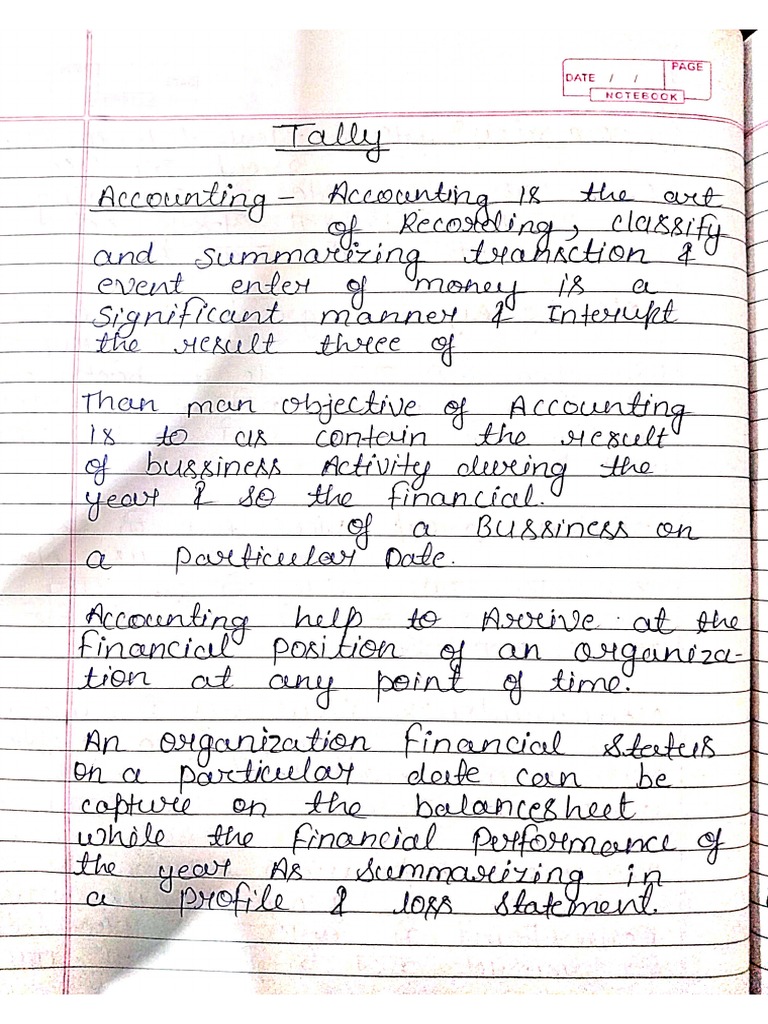 PAGE
DATE / /
NOTEBOOK
Tally
Accounting - Accounting is the art
of Recording, classify
and summarizing transction &
event enter of money is a
significant manner & Interupt
the result three of
Than man objective of Accounting
is to as contain the result
of bussiness Activity during the
year & so the financial.
of a Bussiness on
a particular Date.
Accounting help to Arrive at the
financial position of an organiza-
tion at any point of time.
An organization financial status
on a particular date can be
capture on the balancesheet
while the financial performance of
the year As summarizing in
a profile & loss statement.